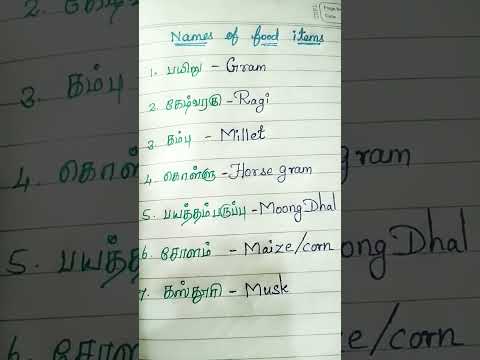 Names of food items
1. பயிறு - Gram
2. கேஷ்வரகு - Ragi
3. கம்பு - Millet
4. கொள்ளு - Horse gram
5. பயத்தம் பருப்பு - Moong Dhal
6. சோளம் - Maize/corn
7. கஸ்தூரி - Musk